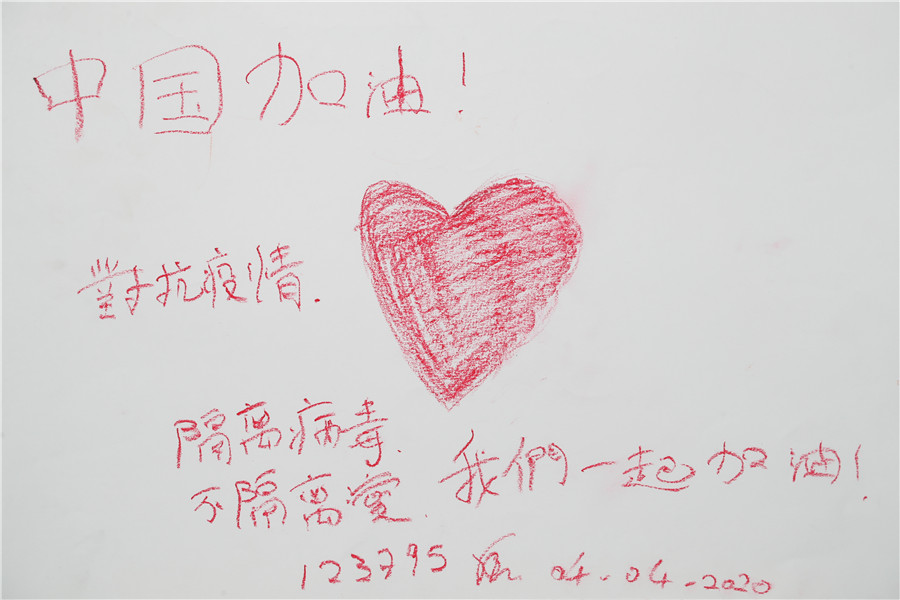 中国加油！
對抗疫情.
隔离病毒.
不隔离愛. 我們一起加油！
123795 04.04-2020